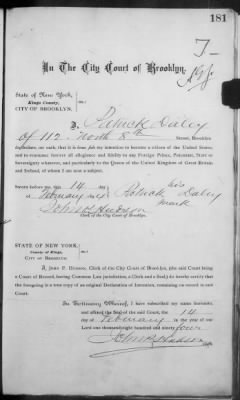 181
In The City Court of Brooklyn.
State of New York,
Kings County, ss.:
CITY OF BROOKLYN.
I, Patrick Daley
of 112 North 8th Street, Brooklyn
declare, on oath, that it is bona fide my intention to become a citizen of the United States,
and to renounce forever all allegiance and fidelity to any Foreign Prince, Potentate, State or
Sovereignty whatever, and particularly to the Queen of the United Kingdom of Great Britain
and Ireland, of whom I am now a subject.
Sworn before me, this 14 day
of February 1894
Patrick his Daley
mark
John P. Hudson
Clerk of the City Court of Brooklyn.
STATE OF NEW YORK,
County of Kings, ss.:
CITY OF BROOKLYN.
I, JOHN P. HUDSON, Clerk of the City Court of Brooklyn, (the said Court being
a Court of Record, having Common Law jurisdiction, a Clerk and a Seal,) do hereby certify that
the foregoing is a true copy of an original Declaration of Intention, remaining on record in said
Court.
In Testimony Whereof, I have subscribed my name hereunto,
and affixed the Seal of the said Court, the 14
day of February in the year of our
Lord one thousand eight hundred and ninety four
John P. Hudson
Clerk.